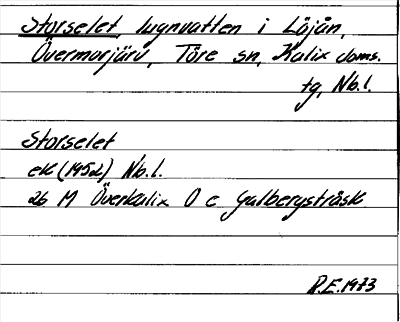 Storselet, lugnvatten i Löjån,
Övermorjärv, Töre sn, Kalix doms.
tg, Nb.l.
Storselet
ek (1952) Nb.l.
26 M Överkalix 0 e Galbergsträsk
R.E. 1973